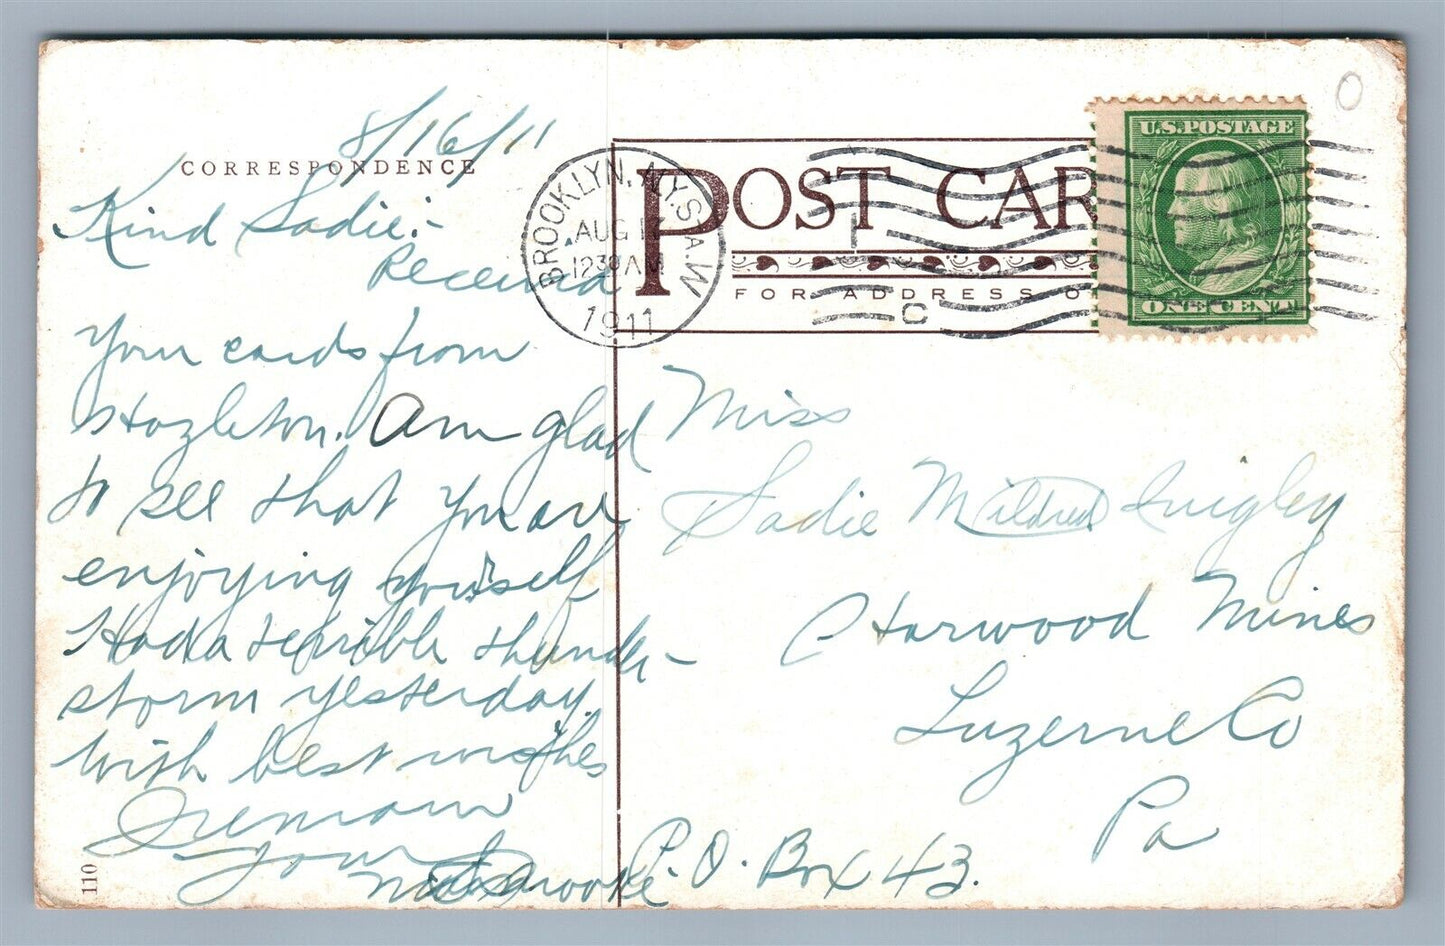 8/16/11
CORRESPONDENCE
Kind Sadie:-
Received
your cards from
Hazleton. Am glad
to see that you are
enjoying yourself
Had a terrible thunder-
storm yesterday.
With best wishes
I remain
your
BROOKLYN, N.Y. STA. W
AUG 17
12 30 AM
1911
POST CAR
FOR ADDRESS O
C
U.S. POSTAGE
ONE CENT
Miss
Sadie Mildred Quigley
Harwood Mines
Luzerne Co
Pa
P.O. Box 43.
110
0